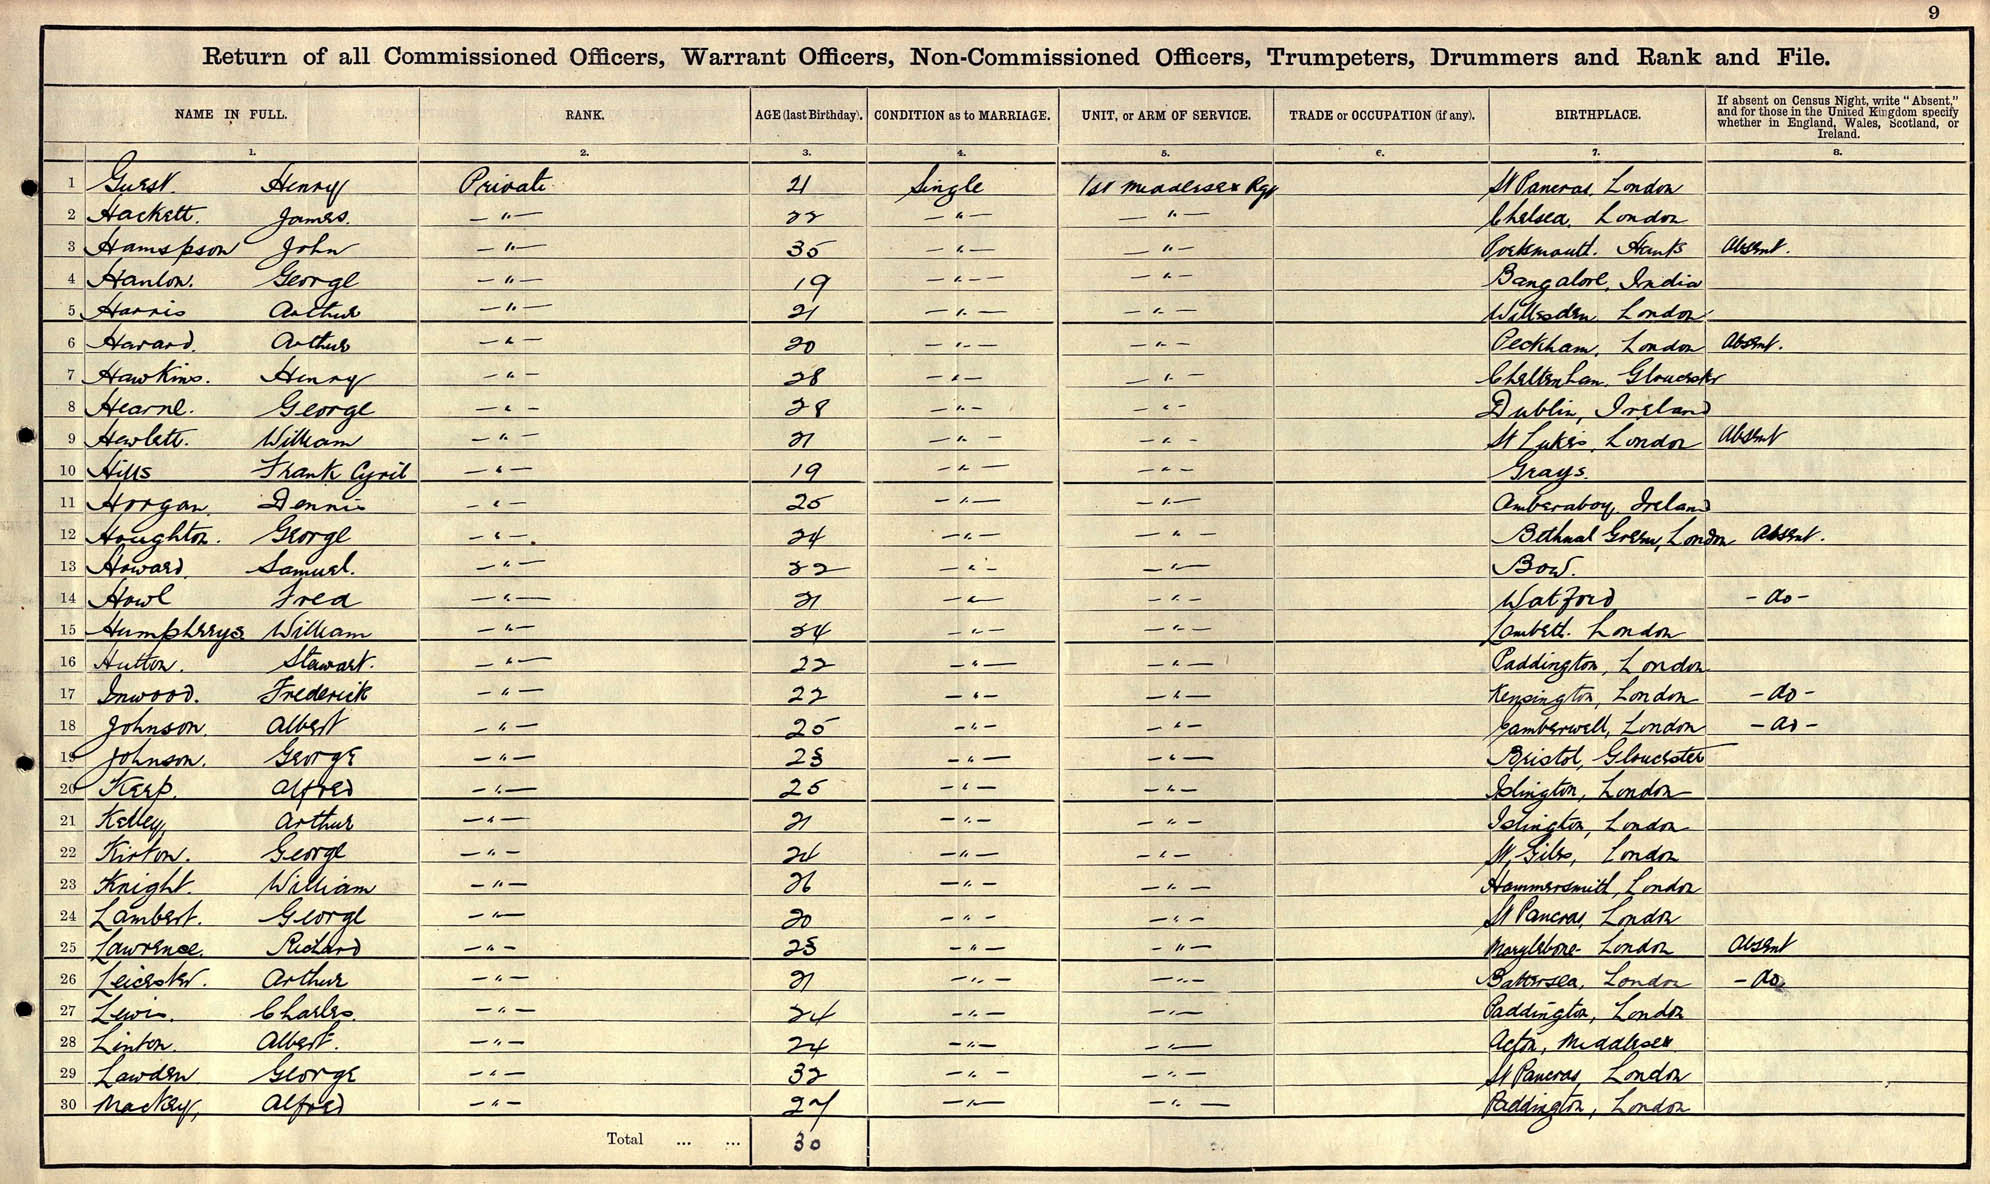 9
Return of all Commissioned Officers, Warrant Officers, Non-Commissioned Officers, Trumpeters, Drummers and Rank and File.
NAME IN FULL. RANK. AGE (last Birthday). CONDITION as to MARRIAGE. UNIT, or ARM OF SERVICE. TRADE or OCCUPATION (if any). BIRTHPLACE. If absent on Census Night, write "Absent," and for those in the United Kingdom specify whether in England, Wales, Scotland, or Ireland.
1. 2. 3. 4. 5. 6. 7. 8.
1 Guest. Henry Private 21 Single 1st Middlesex Rgt St Pancras, London
2 Hackett. James. —"— 22 —"— —"— Chelsea, London
3 Hamspson John —"— 35 —"— —"— Portsmouth. Hants Absent.
4 Hanlon. George —"— 19 —"— —"— Bangalore, India
5 Harris Arthur —"— 21 —"— —"— Willesden London
6 Havard. Arthur —"— 20 —"— —"— Peckham, London Absent.
7 Hawkins. Henry —"— 28 —"— —"— Cheltenham, Gloucester
8 Hearne. George —"— 28 —"— —"— Dublin, Ireland
9 Hewlett. William —"— 21 —"— —"— St Lukes, London Absent
10 Hills Frank Cyril —"— 19 —"— —"— Grays.
11 Horgan. Dennis —"— 25 —"— —"— Ireland
12 Houghton. George —"— 24 —"— —"— Bethnal Green, London Absent.
13 Howard. Samuel. —"— 22 —"— —"— Bow.
14 Howl Fred —"— 21 —"— —"— Watford —do—
15 Humpherys William —"— 24 —"— —"— Lambeth. London
16 Hutton. Stewart. —"— 22 —"— —"— Paddington, London
17 Inwood. Frederick —"— 22 —"— —"— Kensington, London —do—
18 Johnson. Albert —"— 25 —"— —"— Camberwell, London —do—
19 Johnson. George —"— 23 —"— —"— Bristol, Gloucester
20 Keep. Alfred —"— 25 —"— —"— Islington, London
21 Kelley, Arthur —"— 21 —"— —"— Islington, London
22 Kirton. George —"— 24 —"— —"— St Giles, London
23 Knight. William —"— 26 —"— —"— Hammersmith, London
24 Lambert. George —"— 20 —"— —"— St Pancras, London
25 Lawrence. Richard —"— 23 —"— —"— Marylebone London Absent
26 Leicester. Arthur —"— 21 —"— —"— Battersea, London —do
27 Lewis. Charles. —"— 24 —"— —"— Paddington, London
28 Linton. Albert. —"— 24 —"— —"— Acton, Middlesex
29 Lowden George —"— 32 —"— —"— St Pancras, London
30 Mackey, Alfred —"— 27 —"— —"— Paddington, London
Total ... ... 30